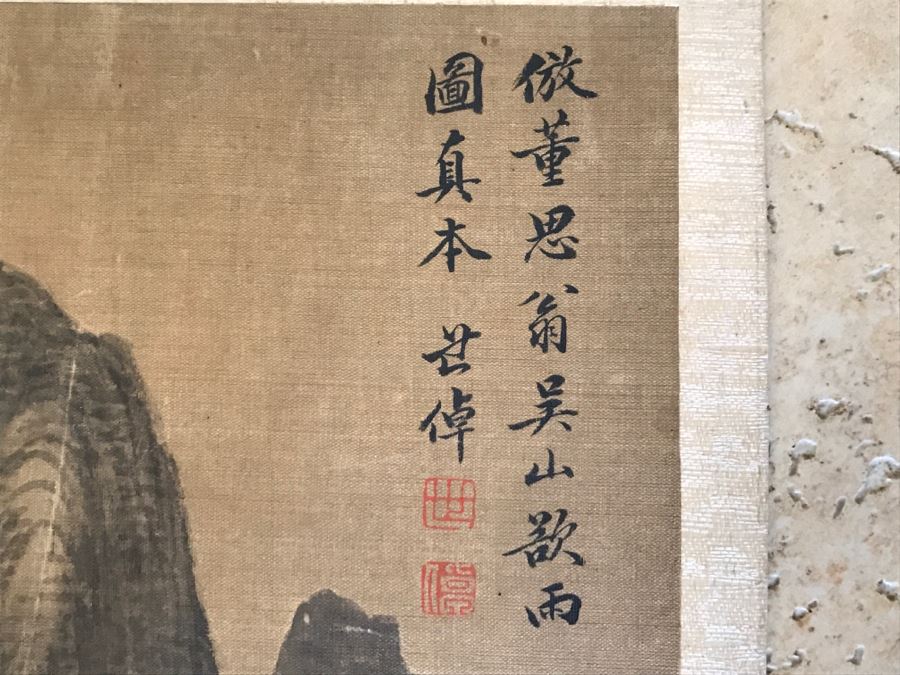 倣董思翁吴山欲雨
圖真本 世倬
世
倬